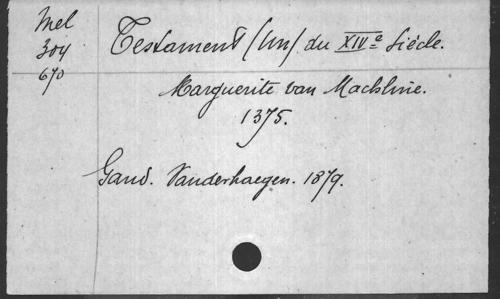 Mel
304
670
Testament (Un) du XIVe Siècle.
Marguerite van Machline.
1375.
Gand. Vanderhaegen. 1879.